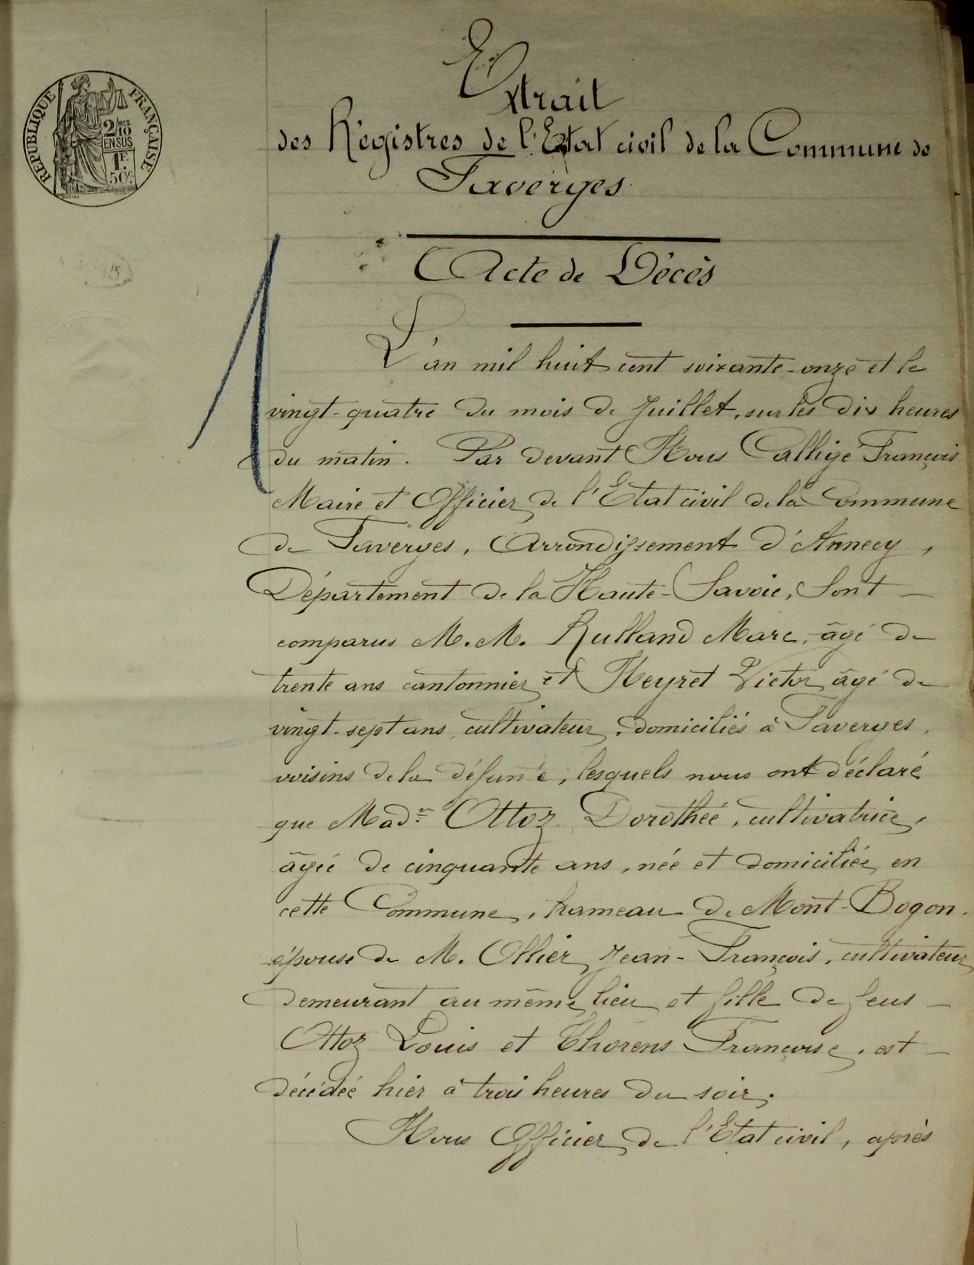 RÉPUBLIQUE FRANÇAISE
2/10
EN SUS
1F.
50c.
Extrait
des Régistres de l'Etat civil de la Commune de
Faverges
Acte de Décès
L'an mil huit cent soixante-onze et le
vingt-quatre du mois de Juillet, sur les dix heures
du matin. Par devant Nous Callige François
Maire et Officier de l'Etat civil de la Commune
de Faverges, Arrondissement d'Annecy,
Département de la Haute-Savoie, Sont
comparus M.M. Rulland Marc, âgé de
trente ans cantonnier et Neyret Victor âgé de
vingt-sept ans, cultivateur, domiciliés à Faverges,
voisins de la défunte, lesquels nous ont déclaré
que Made Ottoz Dorothée, cultivatrice,
âgée de cinquante ans, née et domiciliée en
cette Commune, hameau de Mont-Bogon,
épouse de M. Ollier Jean-François, cultivateur
demeurant au même lieu et fille de feus
Ottoz Louis et Thorens Françoise, est
décédée hier à trois heures du soir.
Nous Officier de l'Etat civil, après